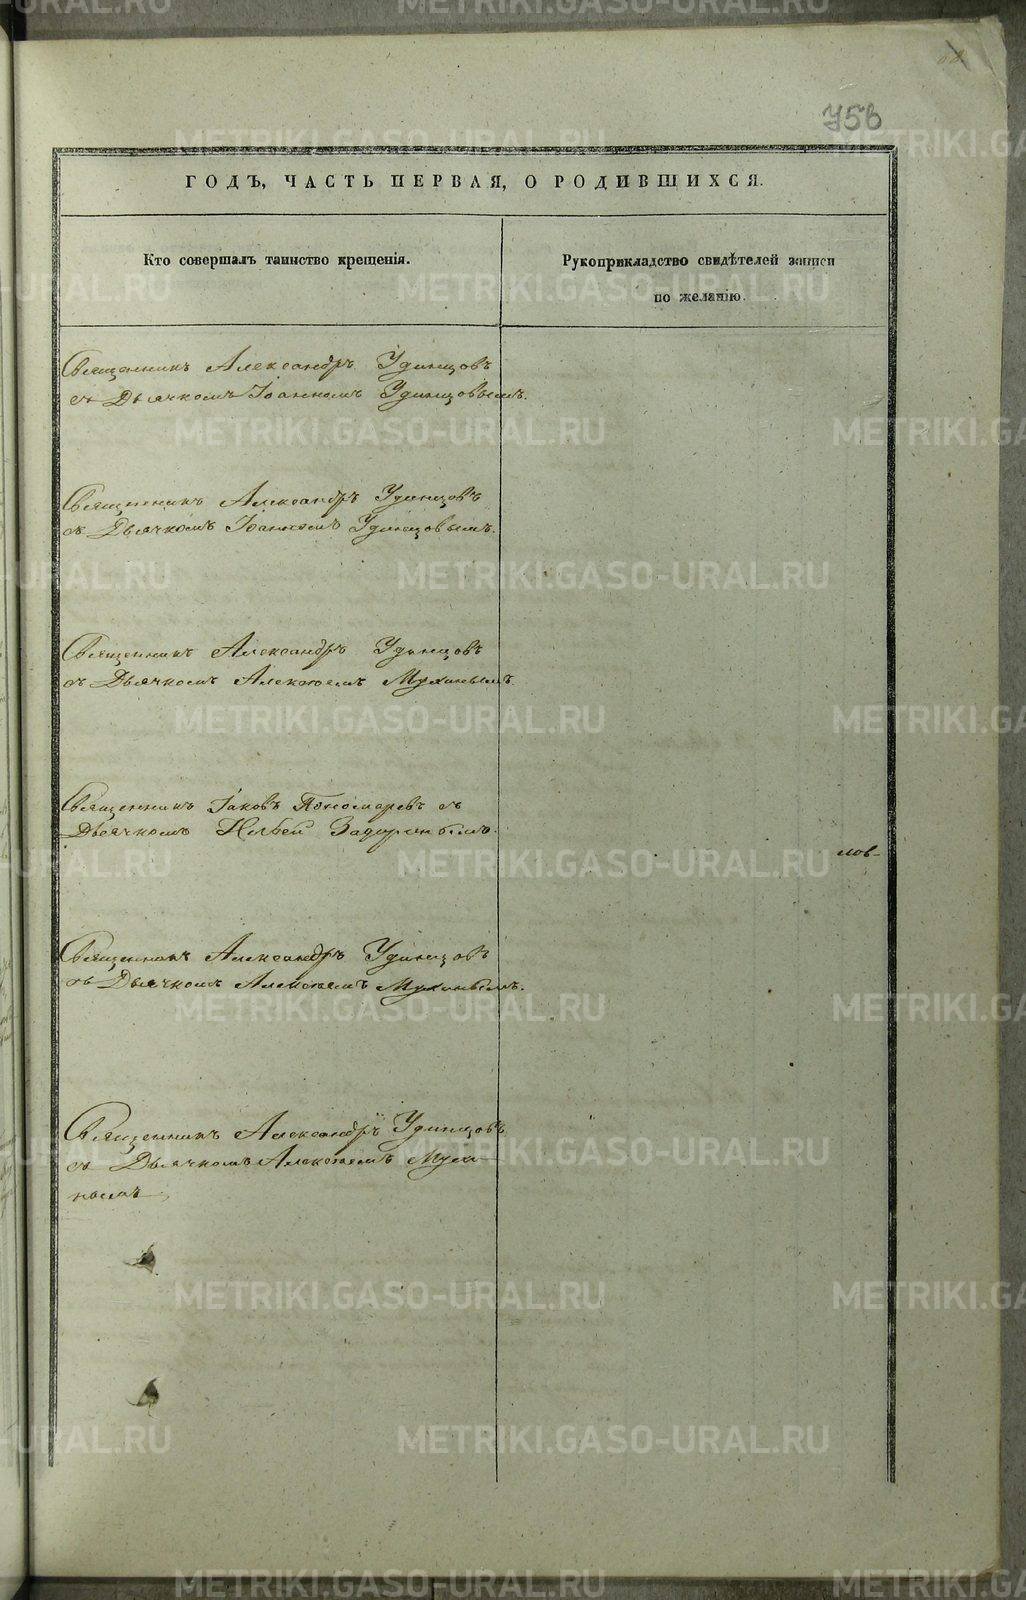 758
ГОДЪ, ЧАСТЬ ПЕРВАЯ, О РОДИВШИХСЯ.
Кто совершалъ таинство крещенія.
Рукоприкладство свидѣтелей записи
по желанію.
Священникъ Александръ Удинцовъ
съ Дьячкомъ Іоанномъ Удинцовымъ.
Священникъ Александръ Удинцовъ
съ Дьячкомъ Іоанномъ Удинцовымъ.
Священникъ Александръ Удинцовъ
съ Дьячкомъ Алексѣемъ Мухинымъ.
Священникъ Іаковъ Пономаревъ съ
Дьячкомъ Ильей Задоринымъ.
лов-
Священникъ Александръ Удинцовъ
съ Дьячкомъ Алексѣемъ Мухинымъ.
Священникъ Александръ Удинцовъ
съ Дьячкомъ Алексѣемъ Мухи-
нымъ
METRIKI.GASO-URAL.RU